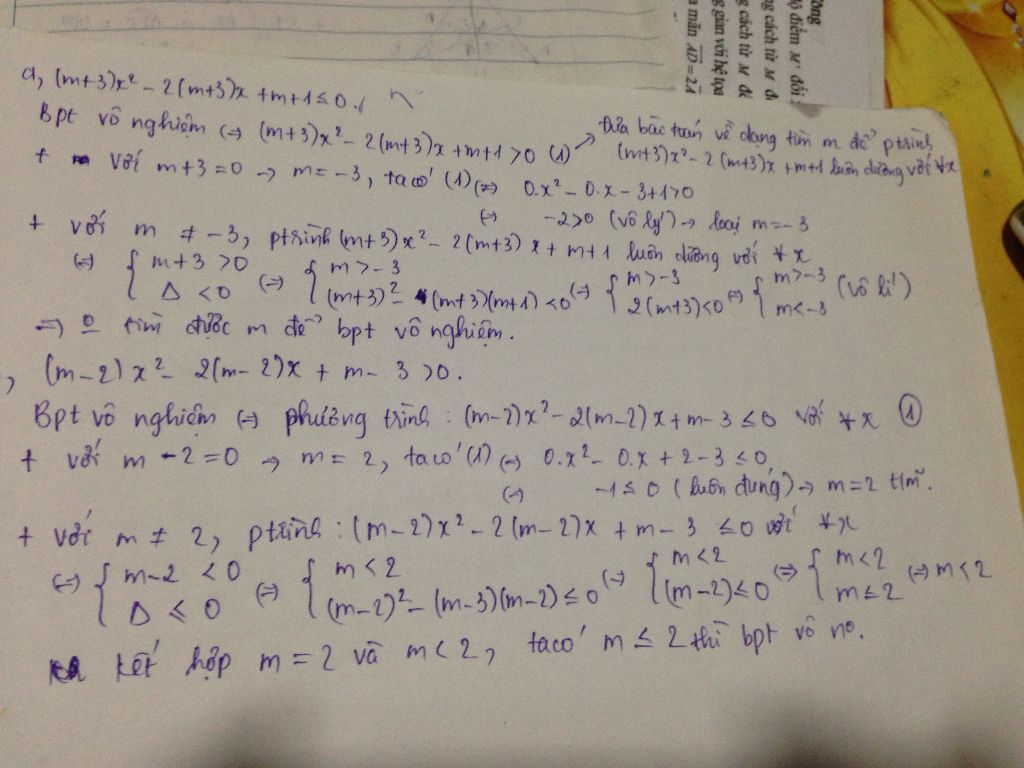 ờng
độ điểm M' đối
g cách từ M đ
g cách từ M đế
g gian với hệ tọa
a mãn AD = 2A
a, (m+3)x² - 2(m+3)x + m+1 ≤ 0.
Bpt vô nghiệm (=) (m+3)x² - 2(m+3)x + m+1 > 0 (1)
Đưa bài toán về dạng tìm m để ptrình
(m+3)x² - 2(m+3)x + m+1 luôn dương với ∀x
+ với m+3 = 0 → m = -3, ta có (1) (=) 0.x² - 0.x - 3+1 > 0
(=) -2 > 0 (vô lý) → loại m = -3
+ với m ≠ -3, ptrình (m+3)x² - 2(m+3)x + m+1 luôn dương với ∀x
(=) { m+3 > 0 ; Δ < 0 (=) { m > -3 ; (m+3)² - (m+3)(m+1) < 0 (=) { m > -3 ; 2(m+3) < 0 (=) { m > -3 ; m < -3 (vô lí)
=> o tìm được m để bpt vô nghiệm.
, (m-2)x² - 2(m-2)x + m - 3 > 0.
Bpt vô nghiệm (=) phương trình : (m-2)x² - 2(m-2)x + m - 3 ≤ 0 với ∀x ①
+ với m - 2 = 0 → m = 2, ta có (1) (=) 0.x² - 0.x + 2 - 3 ≤ 0
(=) -1 ≤ 0 (luôn đúng) → m = 2 t/m.
+ với m ≠ 2, ptrình : (m-2)x² - 2(m-2)x + m - 3 ≤ 0 với ∀x
(=) { m-2 < 0 ; Δ ≤ 0 (=) { m < 2 ; (m-2)² - (m-3)(m-2) ≤ 0 (=) { m < 2 ; (m-2) ≤ 0 (=) { m < 2 ; m ≤ 2 (=) m < 2
kết hợp m = 2 và m < 2, ta có m ≤ 2 thì bpt vô no.